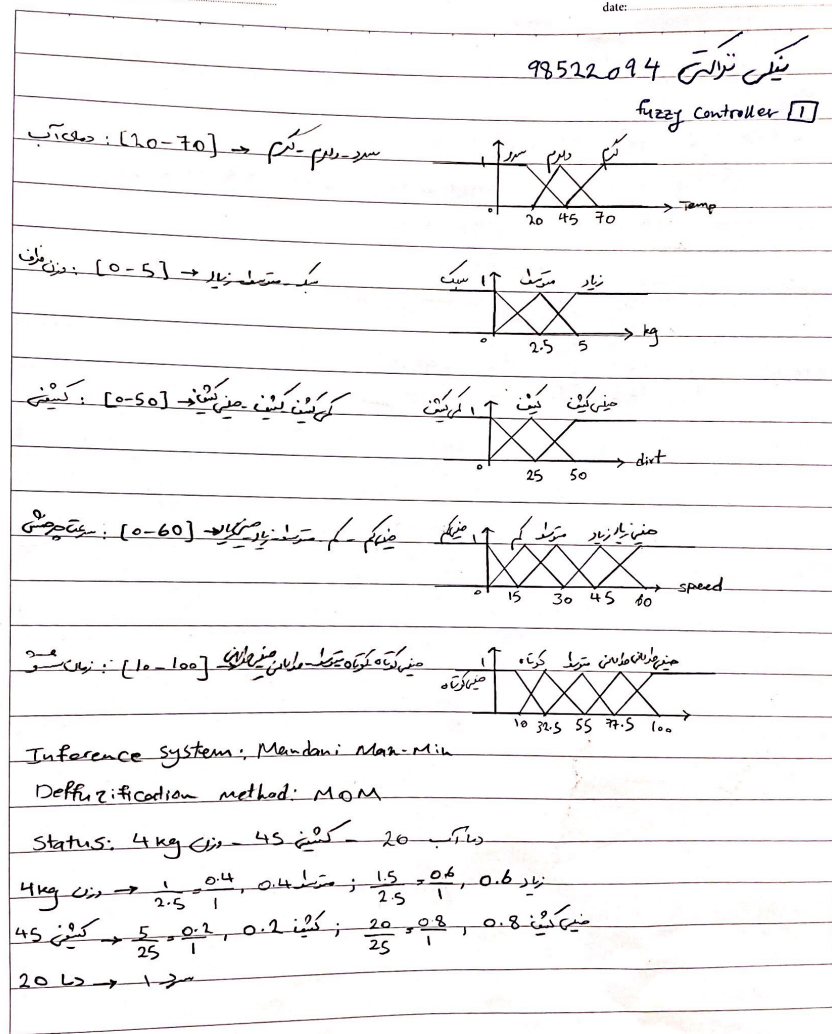 date:
نیکی نزاکتی 98522094
fuzzy controller 1
دمای آب : [20-70] → سرد - ولرم - گرم
1 سرد ولرم گرم
0 20 45 70 Temp
وزن ظرف : [0-5] → سبک - متوسط - زیاد
سبک 1 متوسط زیاد
0 2.5 5 kg
کثیفی : [0-50] → کمی کثیف کثیف - خیلی کثیف
کمی کثیف 1 کثیف خیلی کثیف
0 25 50 dirt
سرعت چرخش : [0-60] → خیلی کم - کم - متوسط - زیاد - خیلی زیاد
خیلی کم 1 کم متوسط زیاد خیلی زیاد
0 15 30 45 60 speed
زمان شستشو : [10-100] خیلی کوتاه کوتاه - متوسط - طولانی خیلی طولانی
خیلی کوتاه 1 کوتاه متوسط طولانی خیلی طولانی
10 32.5 55 77.5 100
Inference system: Mandani Max-Min
Deffuzification method: MOM
Status: 4 kg وزن - 45 کثیفی - 20 دما آب
4kg وزن → 1/2.5 = 0.4/1 , 0.4 متوسط ; 1.5/2.5 = 0.6/1 , 0.6 زیاد
45 کثیفی → 5/25 = 0.2/1 , 0.2 کثیف ; 20/25 = 0.8/1 , 0.8 خیلی کثیف
20 دما → 1 سرد